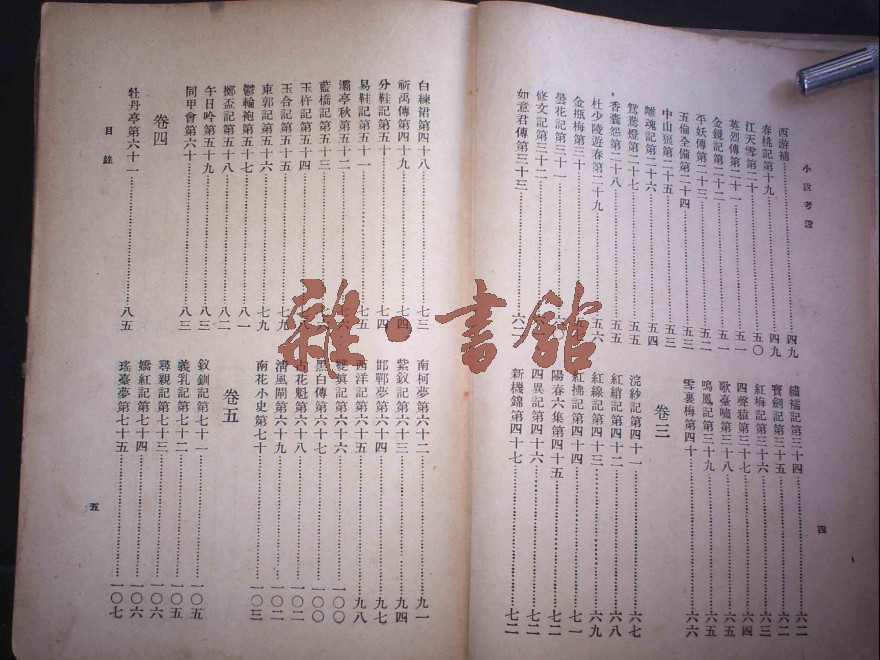 小說考證
西游補 四九
春桃記第十九 四九
江天雪第二十 五〇
英烈傳第二十一 五一
金鏡記第二十二 五一
平妖傳第二十三 五二
五倫全備第二十四 五三
中山狼第二十五 五三
離魂記第二十六 五四
鴛鴦燈第二十七 五五
香囊怨第二十八 五五
杜少陵遊春第二十九 五六
金瓶梅第三十
曇花記第三十一
修文記第三十二
如意君傳第三十三 六二
繡襦記第三十四 六二
寶劍記第三十五 六二
紅梅記第三十六 六三
四聲猿第三十七 六四
歌臺嘯第三十八 六五
鳴鳳記第三十九 六五
雪裏梅第四十 六六
卷三
浣紗記第四十一 六七
紅綃記第四十二 六八
紅線記第四十三 六九
紅拂記第四十四 七一
陽春六集第四十五 七二
四異記第四十六 七二
新機錦第四十七 七二
四
白練裙第四十八 七三
祈禹傳第四十九 七四
分鞋記第五十 七四
易鞋記第五十一 七五
灞亭秋第五十二 七六
藍橋記第五十三
玉杵記第五十四
玉合記第五十五 七九
東郭記第五十六 七九
鬱輪袍第五十七 八一
擲盃記第五十八 八二
午日吟第五十九 八三
同甲會第六十 八三
卷四
牡丹亭第六十一 八五
目錄
南柯夢第六十二 九一
紫釵記第六十三 九四
邯鄲夢第六十四 九七
西洋記第六十五 九八
雙眞記第六十六 一〇〇
黑白傳第六十七 一〇〇
占花魁第六十八 一〇二
清風閘第六十九 一〇二
南花小史第七十 一〇三
卷五
釵釧記第七十一 一〇五
義乳記第七十二 一〇五
尋親記第七十三 一〇六
嬌紅記第七十四 一〇六
瑤臺夢第七十五 一〇七
五
雜·書館